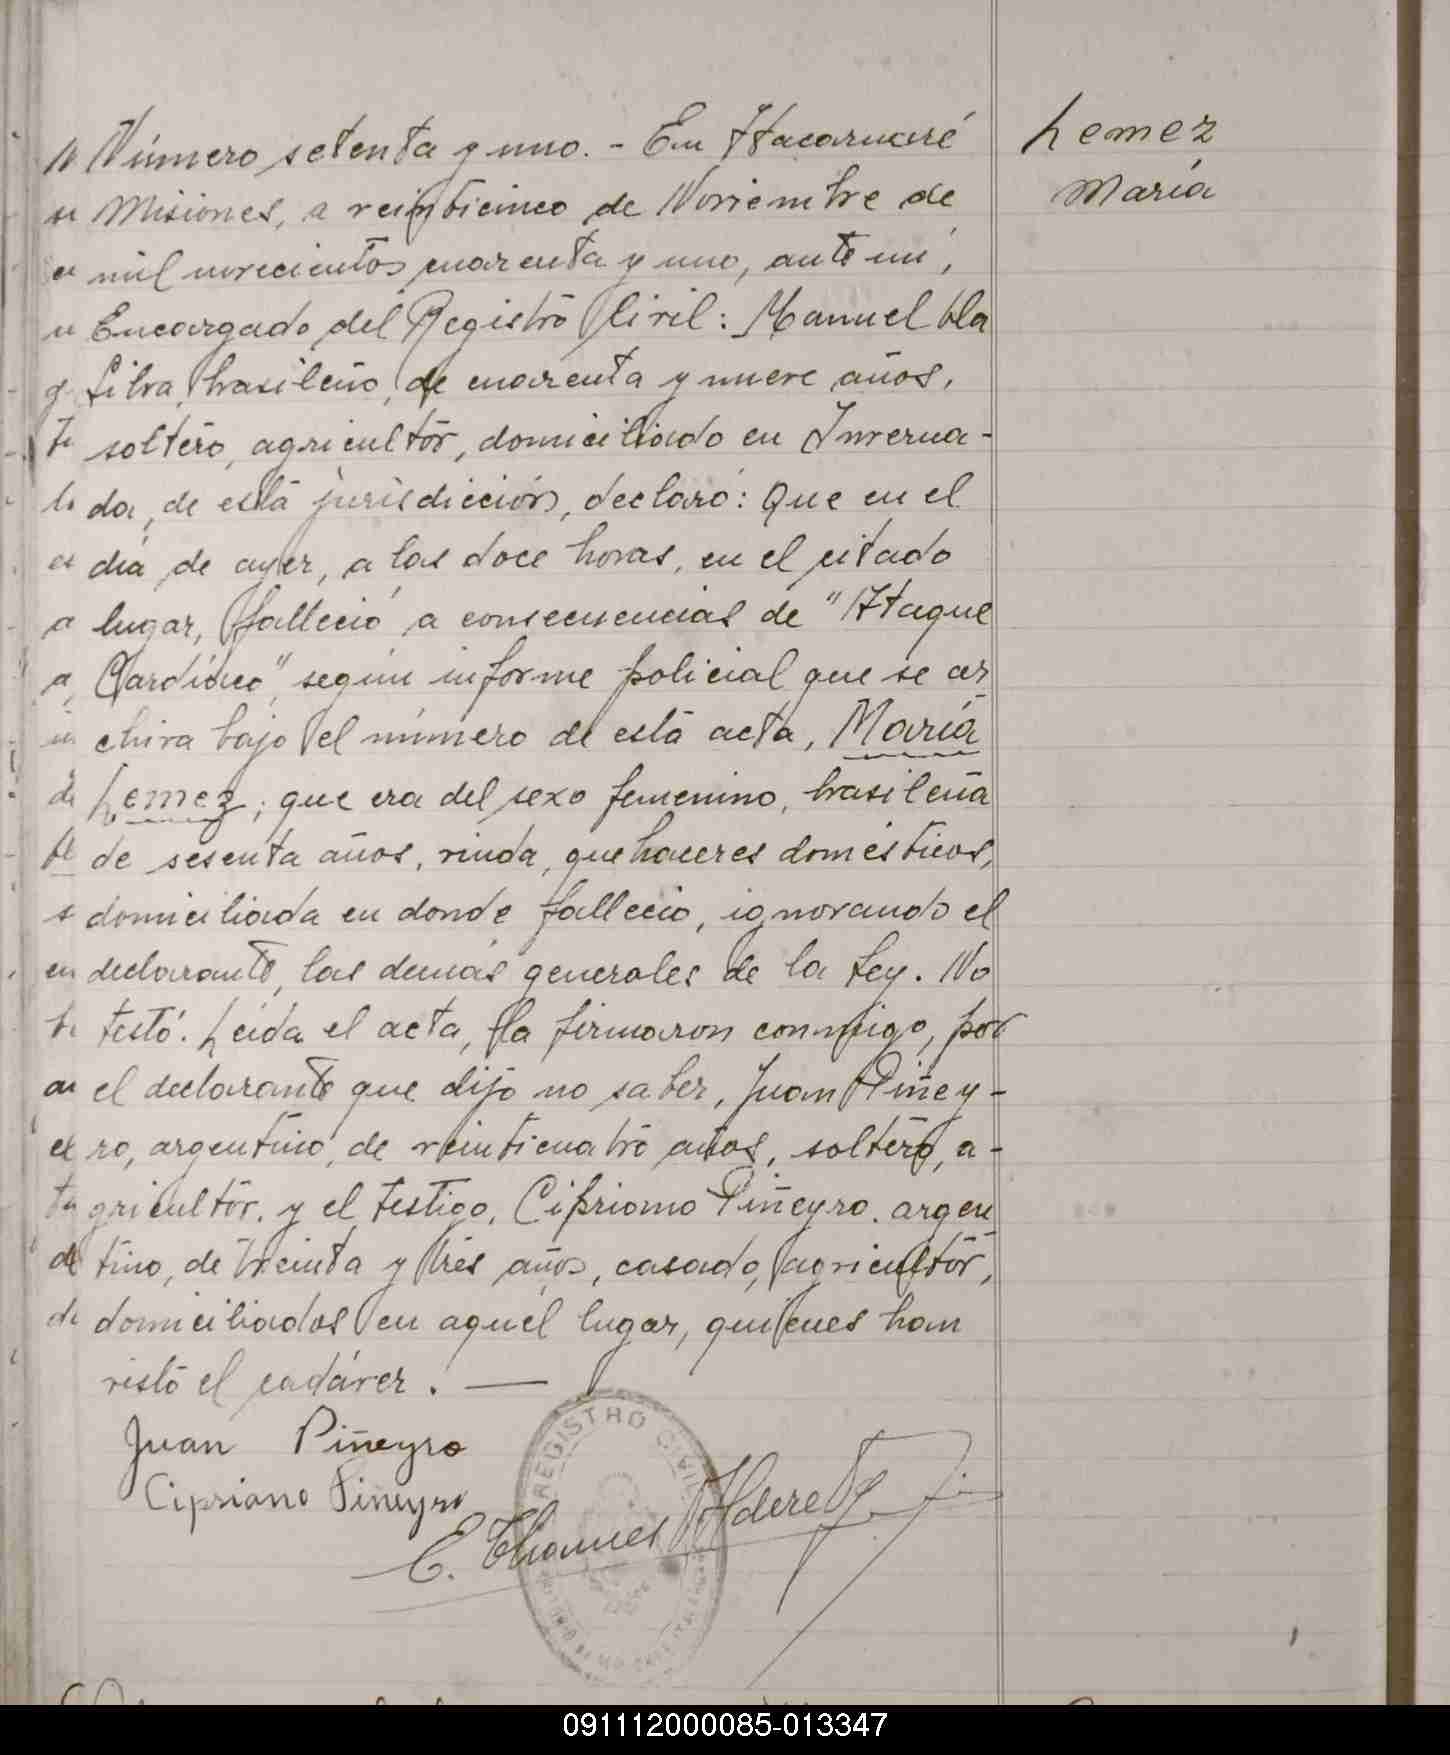 Número setenta y uno. - En Itacaruaré
Misiones, a veinticinco de Noviembre de
mil novecientos cuarenta y uno, ante mí,
Encargado del Registro Civil: Manuel Da
Silva, brasileño, de cuarenta y nueve años,
soltero, agricultor, domiciliado en Inverna-
da, de esta jurisdicción, declaró: Que en el
día de ayer, a las doce horas, en el citado
lugar, falleció a consecuencias de "Ataque
Cardíaco", según informe policial que se ar
chiva bajo el número de esta acta, María
Lemez; que era del sexo femenino, brasileña
de sesenta años, viuda, quehaceres domésticos,
domiciliada en donde falleció, ignorando el
declarante, las demás generales de la Ley. No
testó. Leída el acta, la firmaron conmigo, por
el declarante que dijo no saber, Juan Piñey-
ro, argentino, de veinticuatro años, soltero, a-
gricultor, y el testigo, Cipriano Piñeyro, argen
tino, de treinta y tres años, casado, agricultor,
domiciliados en aquel lugar, quienes han
visto el cadáver. —
Juan Piñeyro
Cipriano Piñeyro
E. Thames Alderete
REGISTRO CIVIL
Lemez
María
091112000085-013347